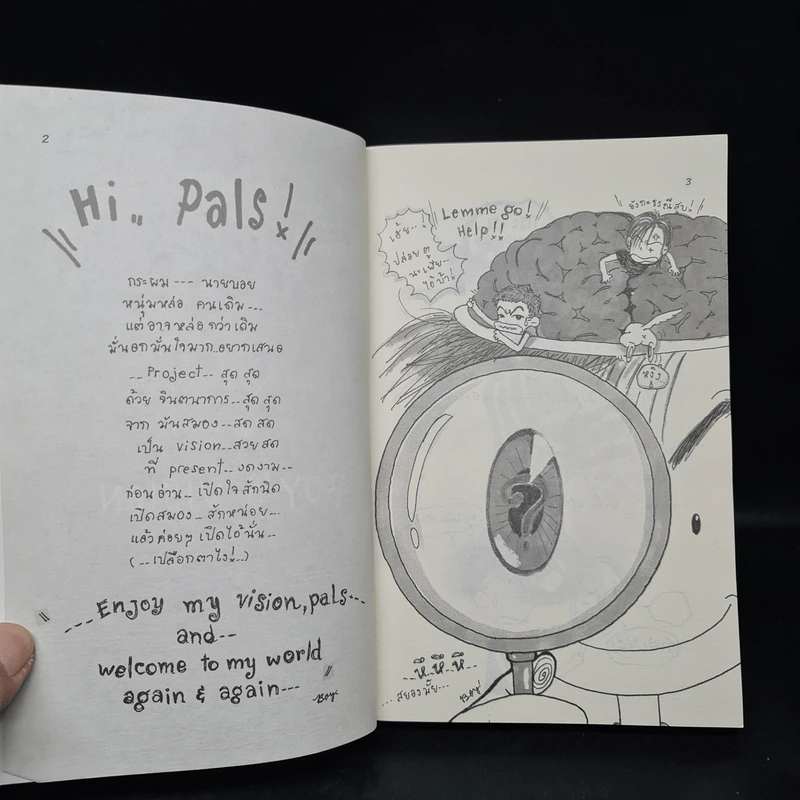 2
Hi.. Pals!
กระผม --- นายบอย
หนุ่มหล่อ คนเดิม ---
แต่อาจหล่อกว่าเดิม
มั่นอกมั่นใจมาก..อยากเสนอ
-- Project -- สุด สุด
ด้วย จินตนาการ -- สุด สุด
จาก มันสมอง -- สด สด
เป็น vision -- สวยสด
ที่ present -- งดงาม --
ก่อนอ่าน -- เปิดใจสักนิด
เปิดสมอง -- สักหน่อย --
แล้วค่อยๆ เปิดไอ้นั่น --
( -- เปลือกตาไง! -- )
--- Enjoy my vision, pals ---
and --
welcome to my world
again & again ---
Boy
3
เฮ้ย --!
ปล่อยตู
นะเฟ้ย --
ไอ้บ้า!
Lemme go!
Help!!
หงิง
-- หึ หึ หึ --
--- สยองมั้ย ---
Boy